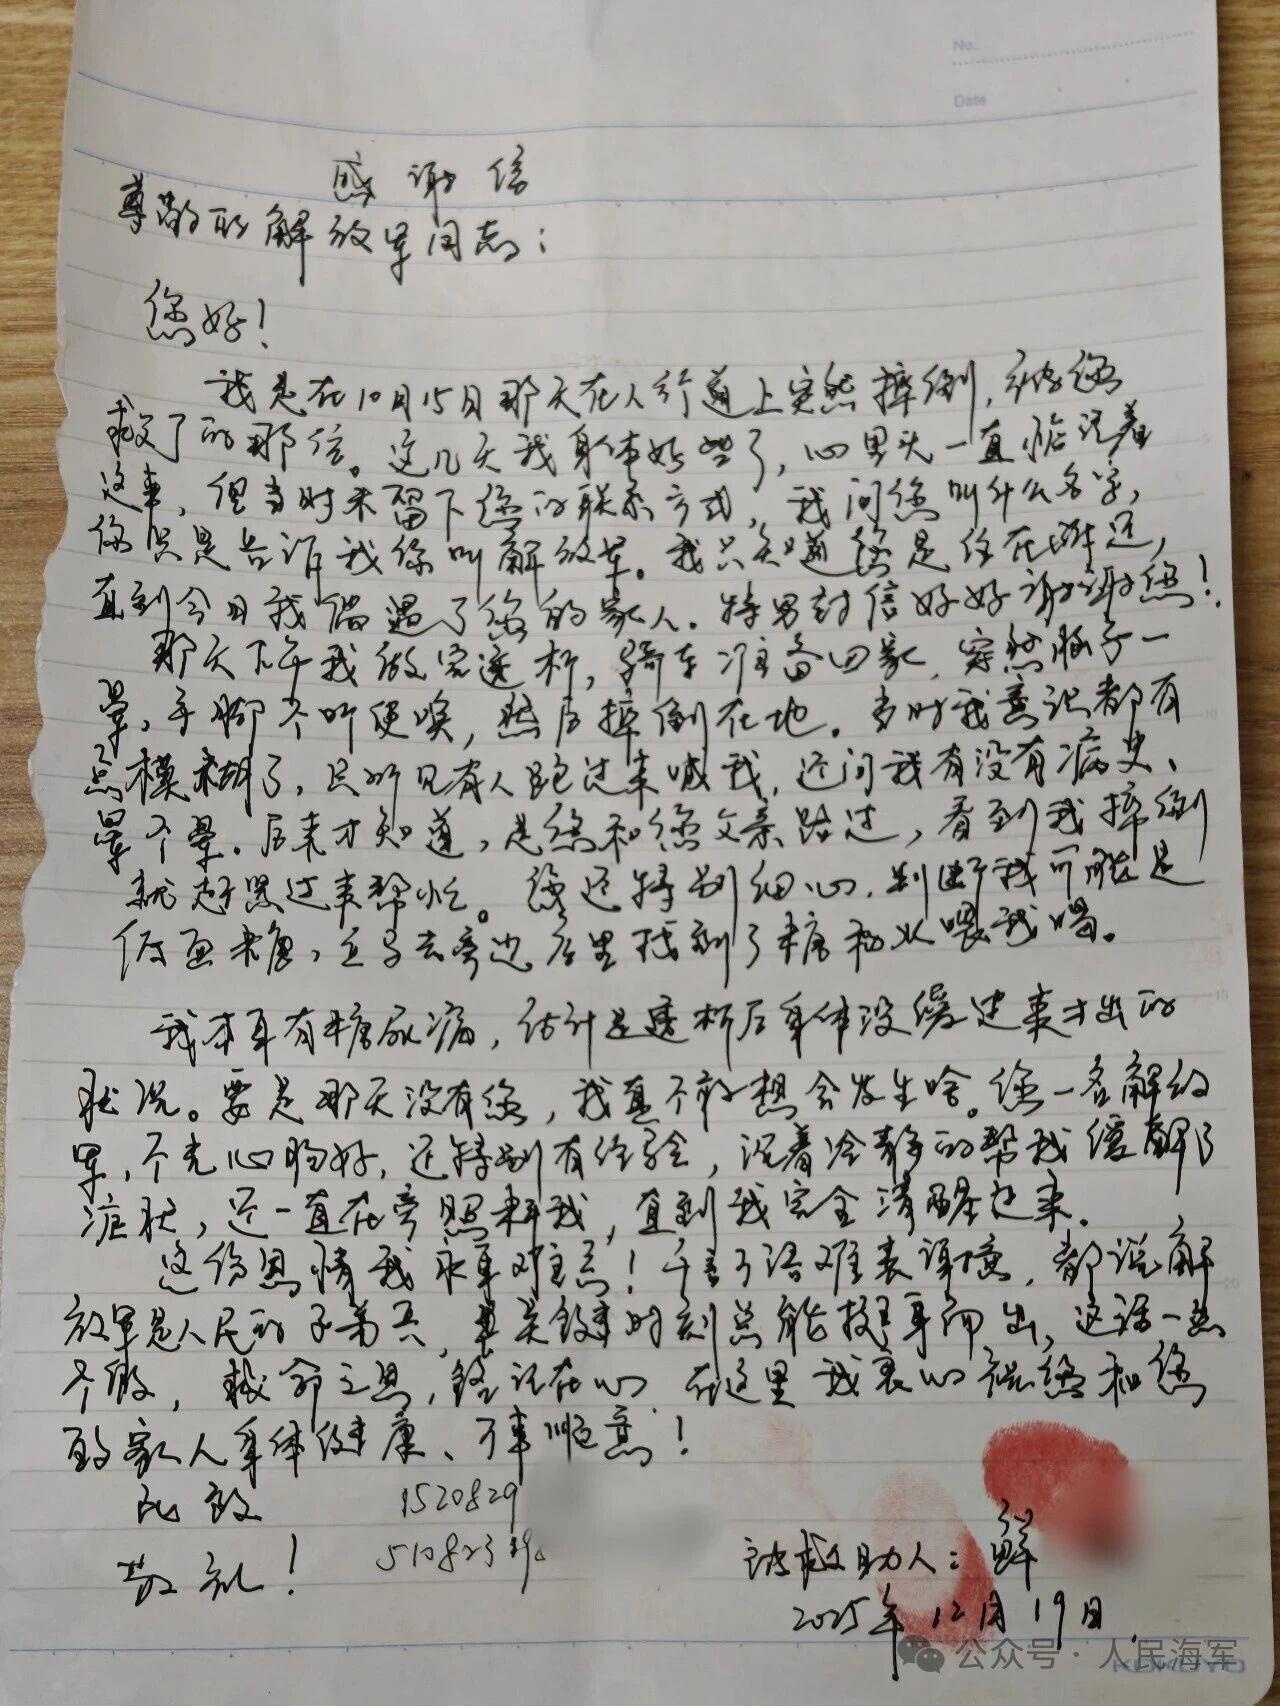 No.
Date
感谢信
尊敬的解放军同志：
您好！
我是在10月15日那天在人行道上突然摔倒，被您
救了的那位。这几天我身体好些了，心里头一直惦记着
这事，但当时未留下您的联系方式，我问您叫什么名字，
你只是告诉我你叫解放军。我只知道您是住在附近，
直到今日我偶遇了您的家人。特写封信好好谢谢您！
那天下午我做完透析，骑车准备回家，突然脑子一
晕，手脚不听使唤，然后摔倒在地。当时我意识都有
点模糊了，只听见有人跑过来喊我，还问我有没有病史、
晕不晕。后来才知道，是您和您父亲路过，看到我摔倒
就赶紧过来帮忙。您还特别细心，判断我可能是
低血糖，立马去旁边店里找到了糖和水喂我喝。
我本身有糖尿病，估计是透析后身体没缓过来才出的
状况。要是那天没有您，我真不敢想会发生啥。您一名解放
军，不光心肠好，还特别有经验，沉着冷静的帮我缓解了
症状，还一直在旁照料我，直到我完全清醒过来。
这份恩情我永事难忘！千言万语难表谢意，都说解
放军是人民的子弟兵，关键时刻总能挺身而出，这话一点
不假，救命之恩，铭记在心 在这里我衷心祝您和您
的家人身体健康、万事顺意！
此致 1520829
敬礼！ 510823
被救助人：鲜
2025年12月19日
公众号·人民海军
KOKUYO